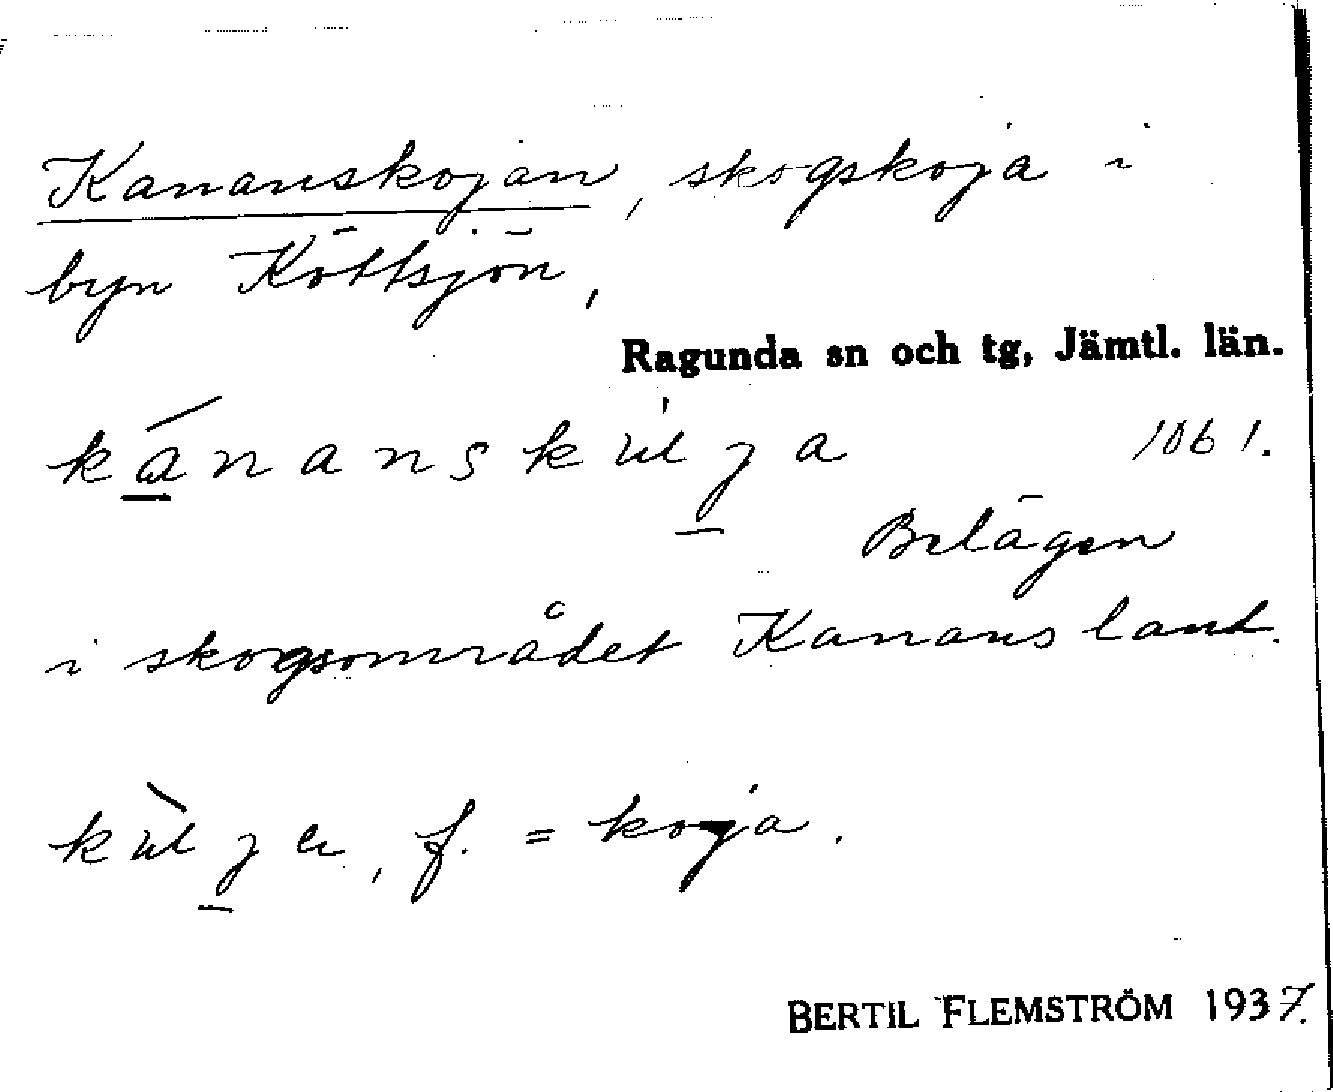 Kananskojan, skogskoja i
byn Köttsjön,
Ragunda sn och tg, Jämtl. län.
kánanskúlja 1061.
Belägen
i skogsområdet Kanans land.
, f. = koja.
BERTIL FLEMSTRÖM 1937.